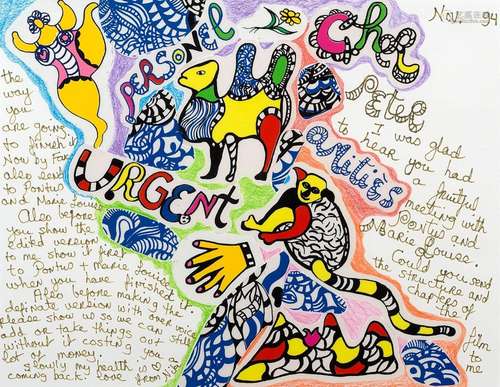 Nov. 94
PERSONEL
Cher
Peter
I was glad
to hear you had
a fruitful
meeting with
Pontus and
Marie Louise.
Could you send
the structure and
chapters of
the
film
to me
URGENT
Amitiès
the
way
you
are going
to finish it
Now by Fax
also send
to Pontus
and Marie Louise
Also before
you show the
edited version
to me show if first
to Pontus + Marie Louise
when you have finished it.
Also before making the
definite version with one voice
please show us so we can still
add or take things out
without it costing you a
lot of money.
slowly my health is
coming back. Love from